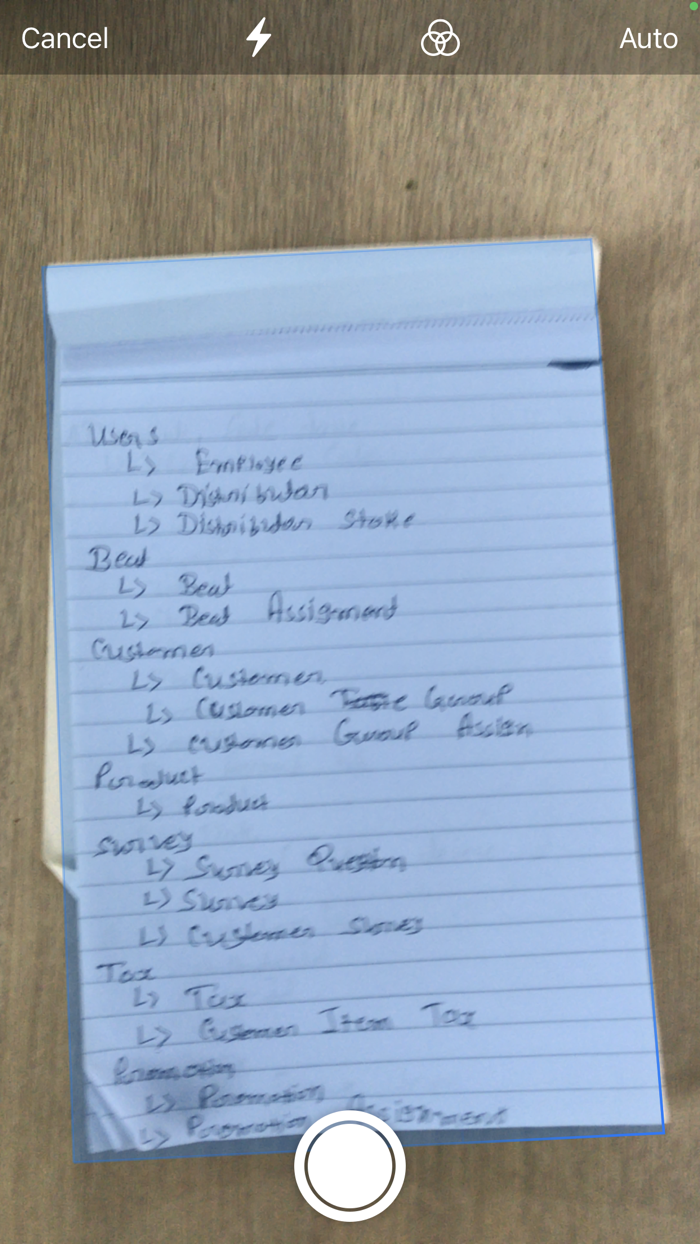 Cancel
Auto
Users
↳ Employee
↳ Distributor
↳ Distributor Stoke
Beat
↳ Beat
↳ Beat Assignment
Customer
↳ Customer
↳ Customer Group
↳ Customer Group Assign
Product
↳ Product
Survey
↳ Survey Question
↳ Survey
↳ Customer
Tax
↳ Tax
↳ Customer Item Tax
Promotion
↳ Promotion
↳ Promotion Assignment